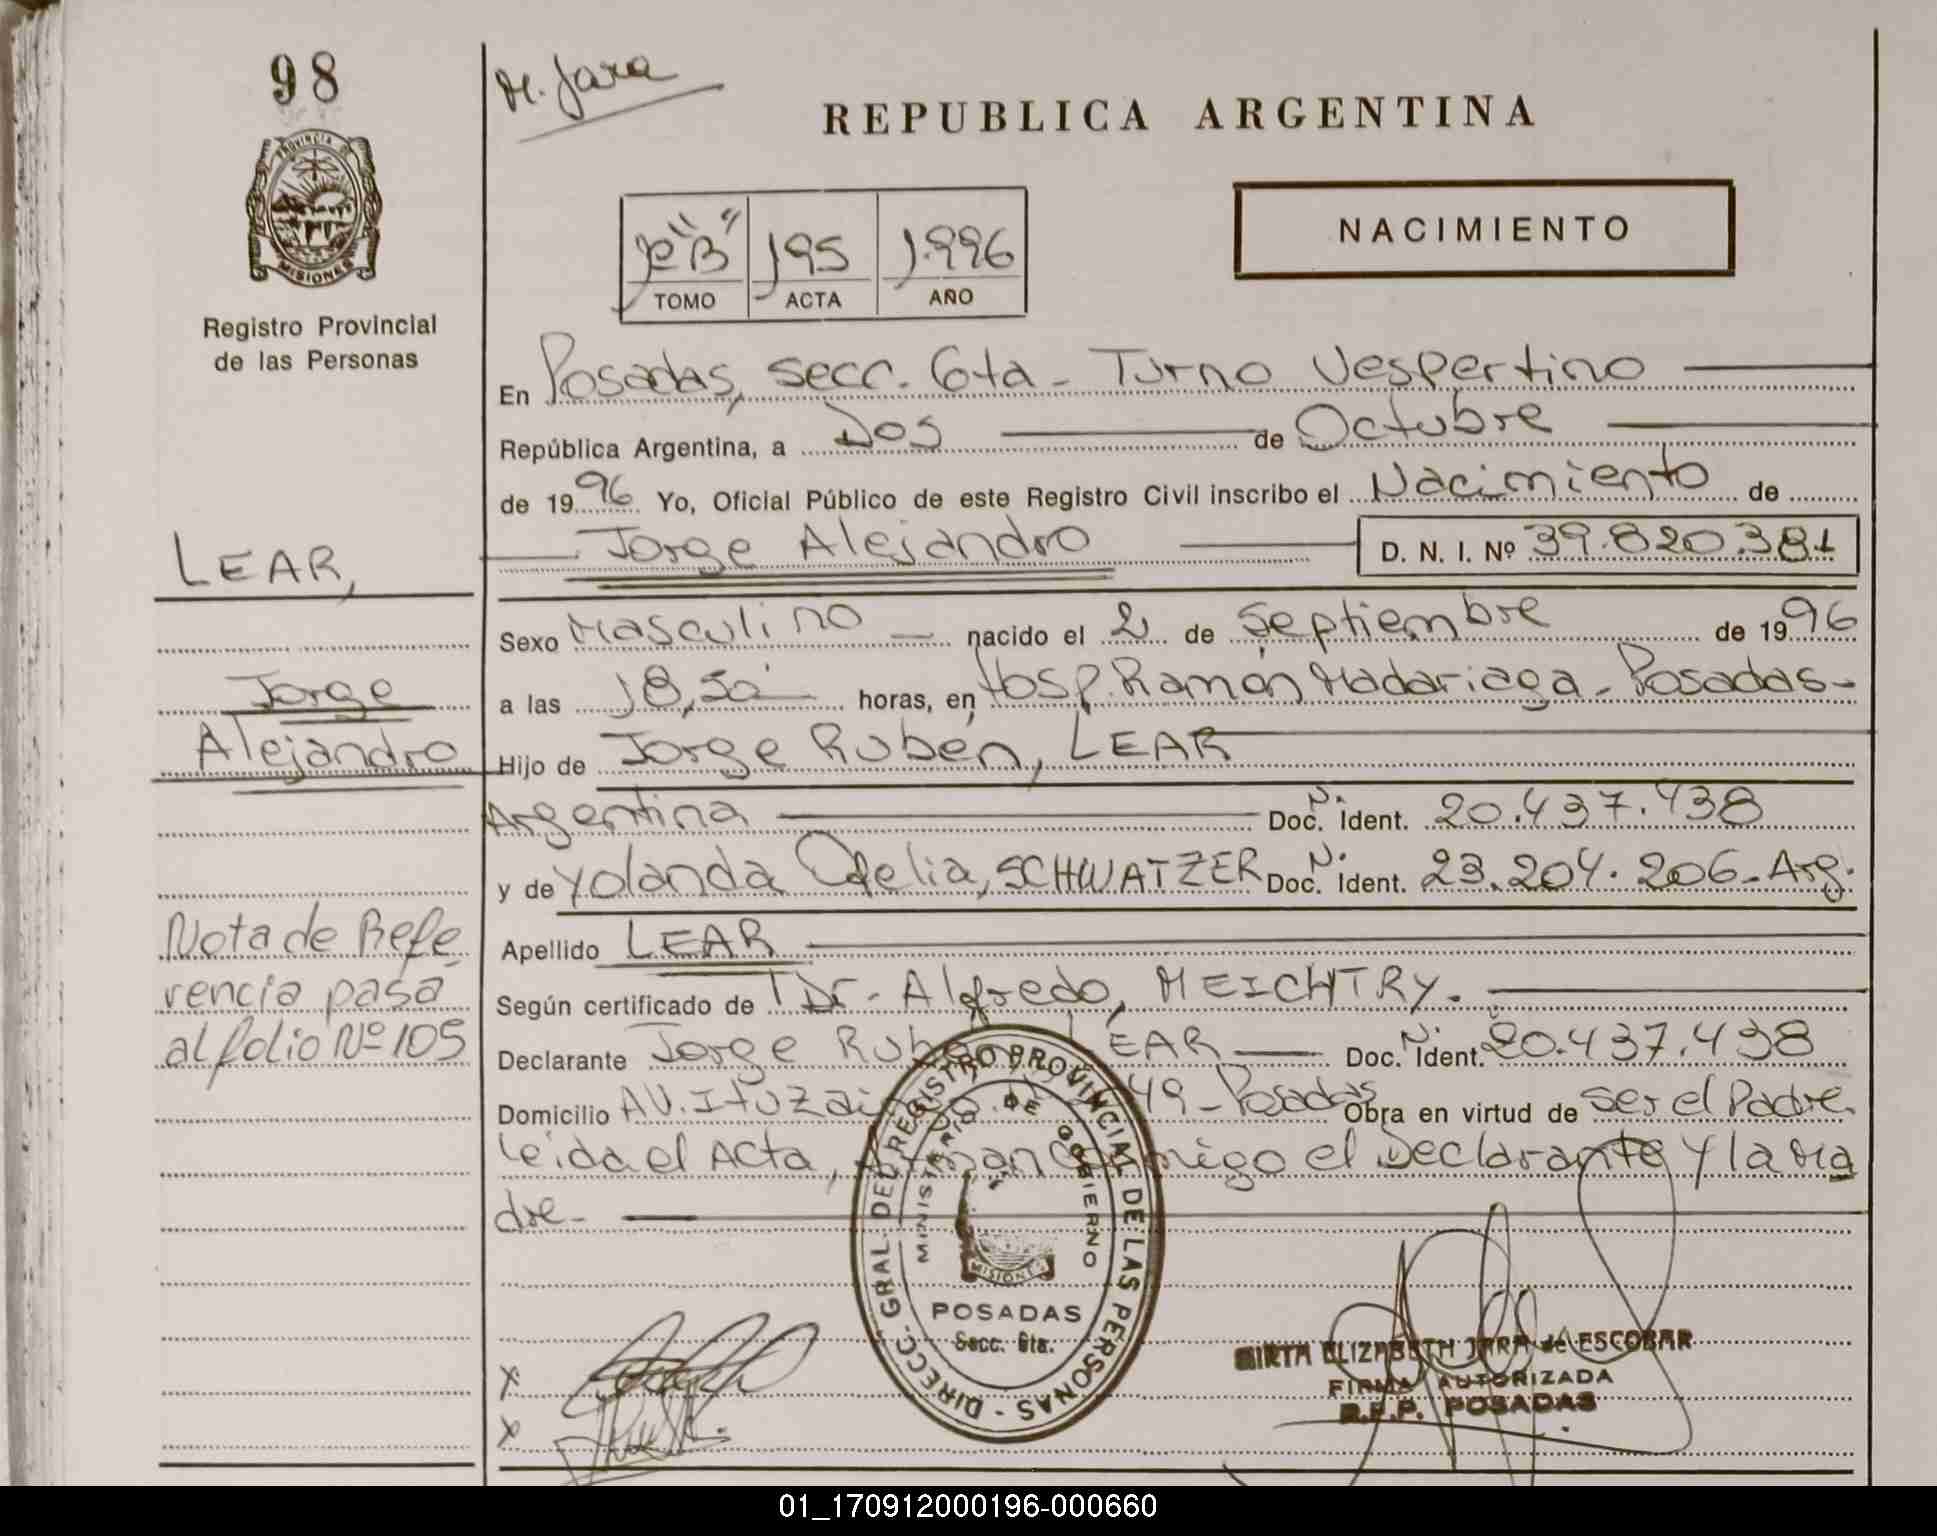 98
M. Jara
REPUBLICA ARGENTINA
PROVINCIA DE
MISIONES
Registro Provincial
de las Personas
1º "B" 195 1.996
TOMO ACTA AÑO
NACIMIENTO
En Posadas, secc. 6ta - Turno Vespertino
República Argentina, a Dos de Octubre
de 1996 Yo, Oficial Público de este Registro Civil inscribo el Nacimiento de
Jorge Alejandro D. N. I. Nº 39.820.381
LEAR,
Jorge
Alejandro
Sexo Masculino nacido el 2 de Septiembre de 1996
a las 18,50 horas, en Hosp. Ramón Madariaga - Posadas -
Hijo de Jorge Rubén, LEAR
Argentina Doc. N. Ident. 20.437.438
y de Yolanda Odelia, SCHWATZER Doc. N. Ident. 23.204.206 - Arg.
Apellido LEAR
Según certificado de Dr. Alfredo, MEICHTRY.
Declarante Jorge Rubén, LEAR Doc. N. Ident. 20.437.438
Domicilio AV. Ituzaingo 49 - Posadas Obra en virtud de ser el Padre.
leida el Acta, firman conmigo el Declarante y la Ma
dre -
Nota de Refe
rencia pasa
al folio Nº 105
DIRECC. GRAL. DEL REGISTRO PROVINCIAL DE LAS PERSONAS -
MINISTERIO DE GOBIERNO
MISIONES
POSADAS
Secc. 6ta.
x
x
MIRTA ELIZABETH JARA de ESCOBAR
FIRMA AUTORIZADA
R.P.P. POSADAS
01_170912000196-000660